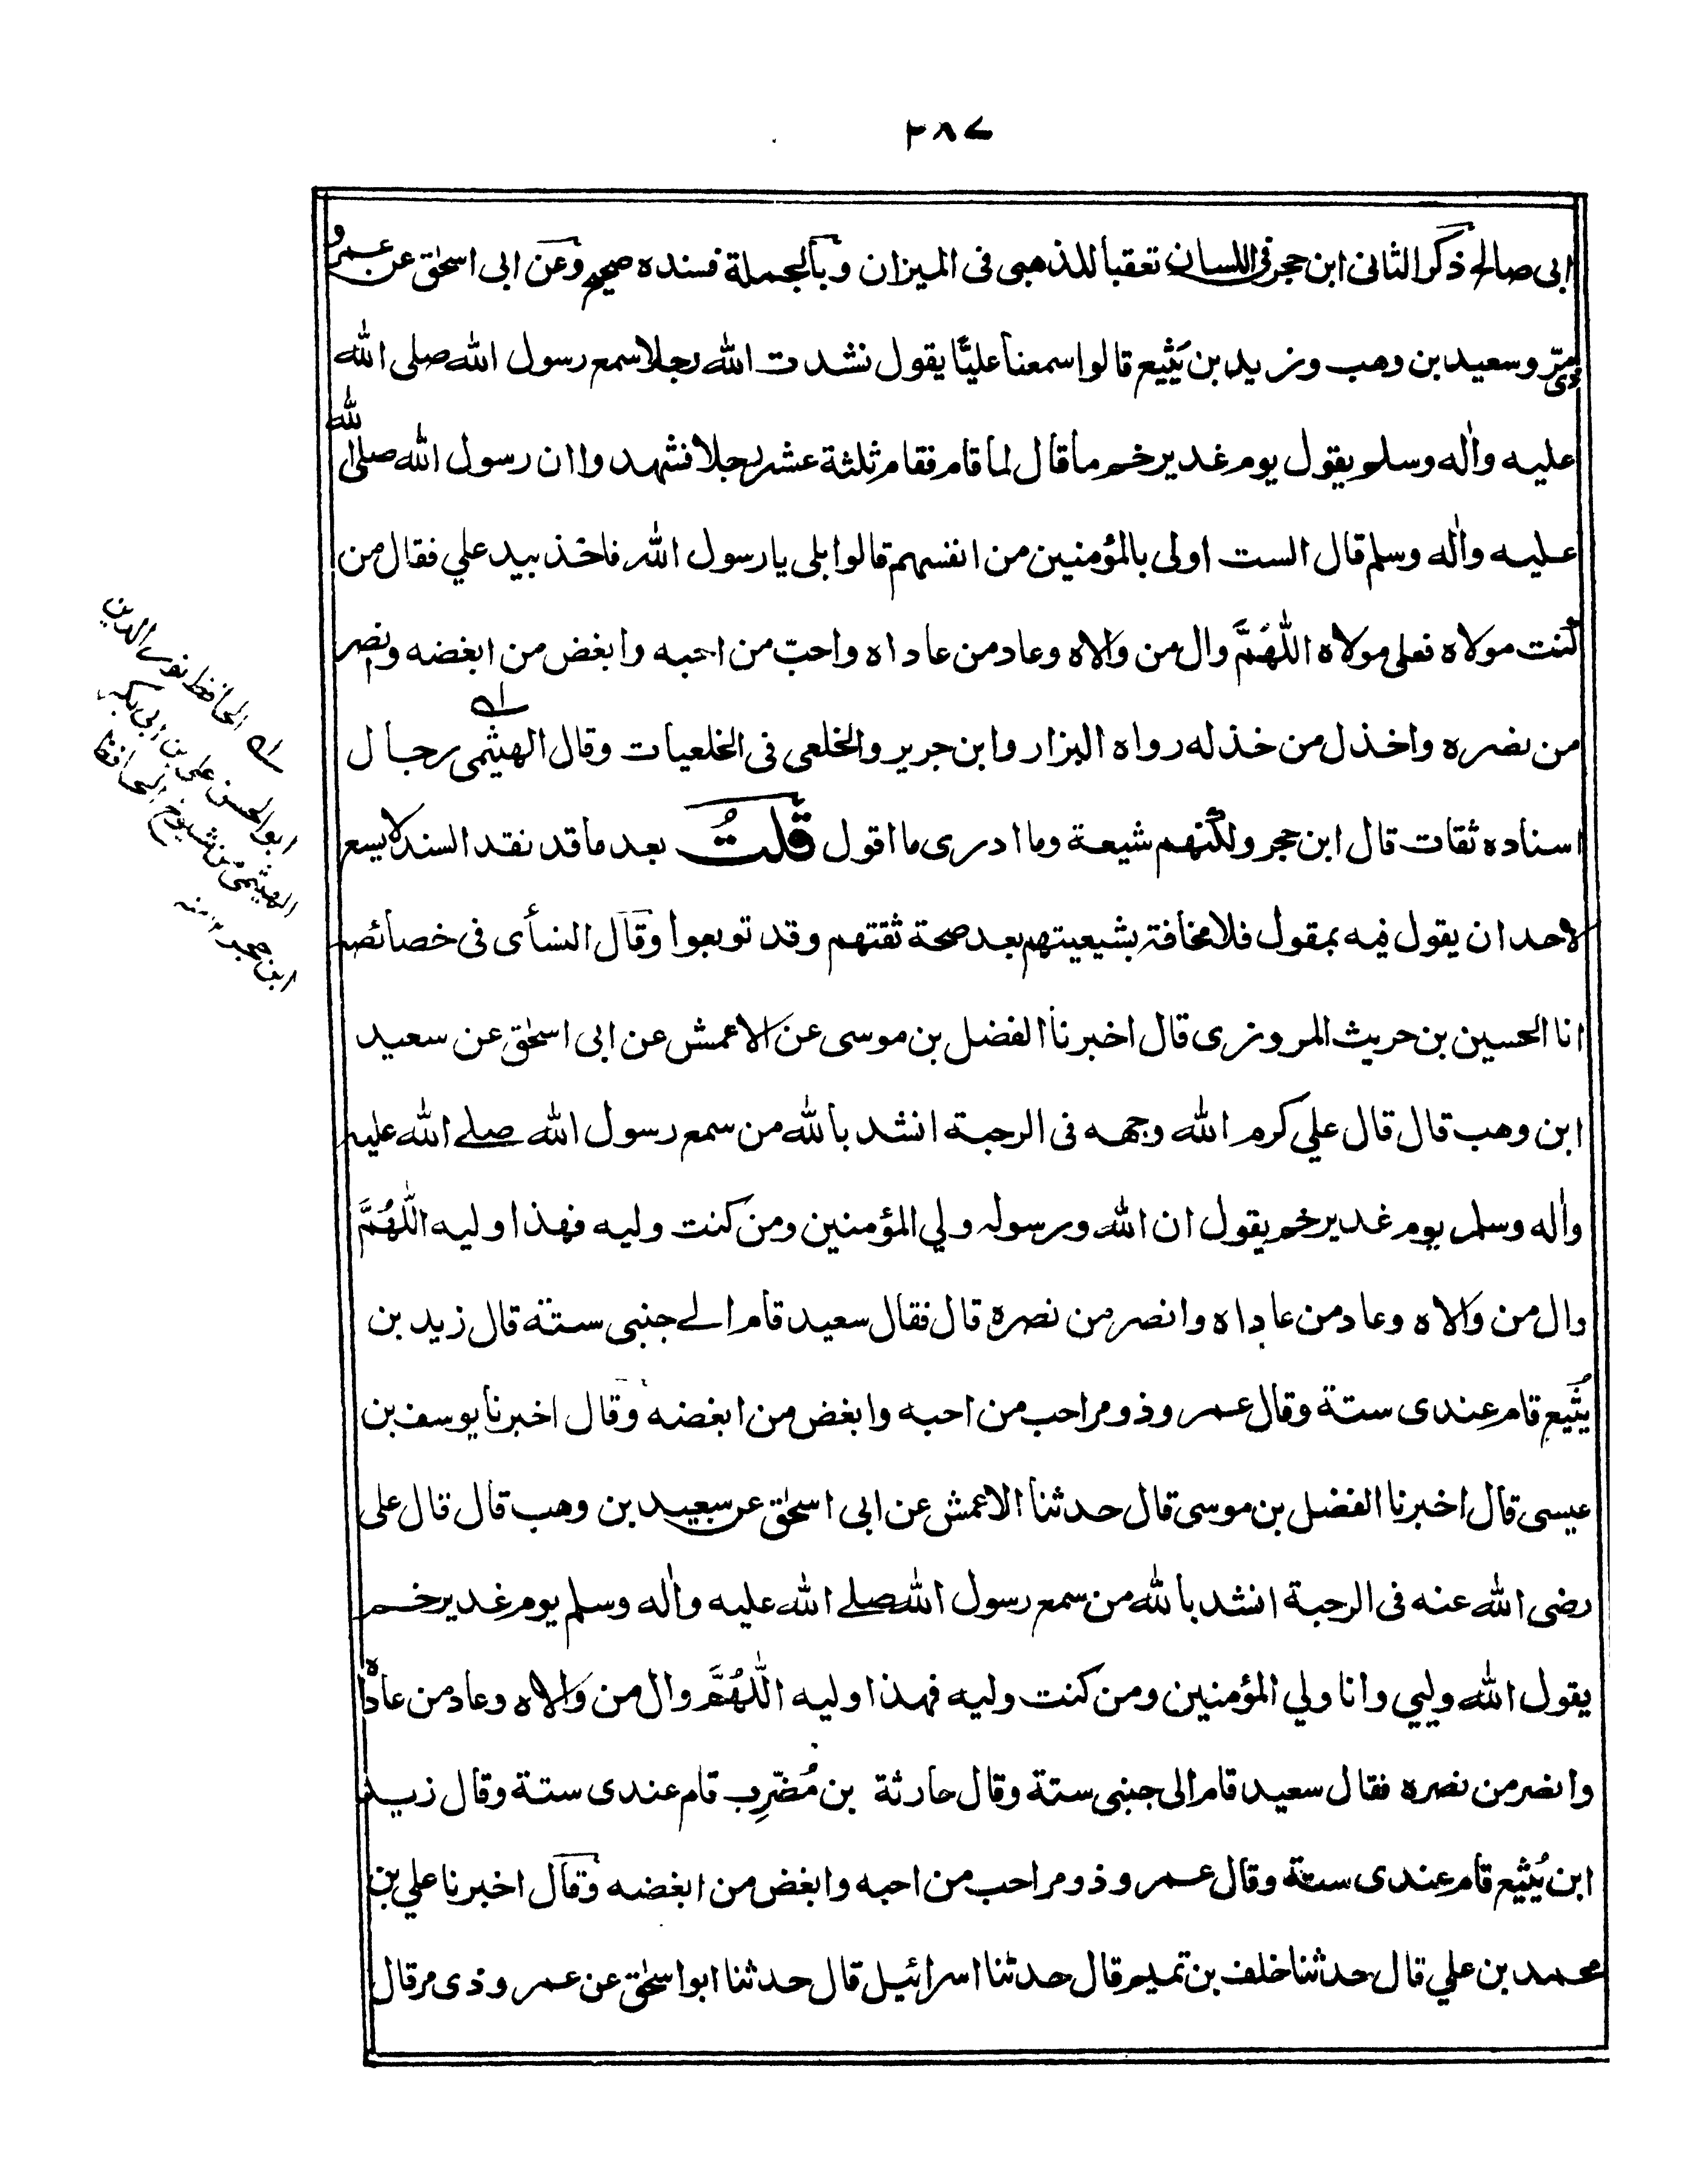 ٢٨٧
ابى صالح ذكر الثانى ابن حجر فى اللسان تعقبا للذهبى فى الميزان وبالجملة فسنده صحيح وعن ابى اسحٰق عن عمرو
ذى مرّ وسعيد بن وهب وزيد بن يثيع قالوا سمعنا عليًّا يقول نشدت الله رجلا سمع رسول الله صلى الله
عليه واٰله وسلم يقول يوم غدير خم ما قال لما قام فقام ثلثة عشر رجلا فشهدوا ان رسول الله صلى الله
عليه واٰله وسلم قال الست اولى بالمؤمنين من انفسهم قالوا بلى يا رسول الله فاخذ بيد علي فقال من
كنت مولاه فعلى مولاه اللّٰهُمَّ وال من والاه وعاد من عاداه واحبّ من احبه وابغض من ابغضه وانصر
من نصره واخذل من خذله رواه البزار وابن جرير والخلعى فى الخلعيات وقال الهيثمى رجال
اسناده ثقات قال ابن حجر ولكنهم شيعة وما ادرى ما اقول قلتُ بعد ما قد نقد السند لا يسع
لاحد ان يقول فيه بمقول فلا مخافة بشيعيتهم بعد صحة ثقتهم وقد توبعوا وقال النسأى فى خصائصه
انا الحسين بن حريث المروزى قال اخبرنا الفضل بن موسى عن الاعمش عن ابى اسحٰق عن سعيد
ابن وهب قال قال علي كرم الله وجهه فى الرحبة انشد بالله من سمع رسول الله صلے الله عليه
واٰله وسلم يوم غدير خم يقول ان الله ورسوله ولي المؤمنين ومن كنت وليه فهذا وليه اللّٰهُمَّ
وال من والاه وعاد من عاداه وانصر من نصره قال فقال سعيد قام الے جنبى ستة قال زيد بن
يُثيع قام عندى ستة وقال عمرو ذو مر احب من احبه وابغض من ابغضه وقال اخبرنا يوسف بن
عيسى قال اخبرنا الفضل بن موسى قال حدثنا الاعمش عن ابى اسحٰق عن سعيد بن وهب قال قال على
رضى الله عنه فى الرحبة انشد بالله من سمع رسول الله صلے الله عليه واٰله وسلم يوم غدير خم
يقول الله وليي وانا ولي المؤمنين ومن كنت وليه فهذا وليه اللّٰهُمَّ وال من والاه وعاد من عاداه
وانصر من نصره فقال سعيد قام الى جنبى ستة وقال حارثة بن مُضَرِّب قام عندى ستة وقال زيد
ابن يُثيع قام عندى ستة وقال عمرو ذو مر احب من احبه وابغض من ابغضه وقال اخبرنا علي بن
محمد بن علي قال حدثنا خلف بن تميم قال حدثنا اسرائيل قال حدثنا ابو اسحٰق عن عمرو ذى مر قال
له الحافظ نور الدين
ابو الحسن على بن ابى بكر
الهيثمى من شيوخ الحافظ
ابن حجر ١٢ منه